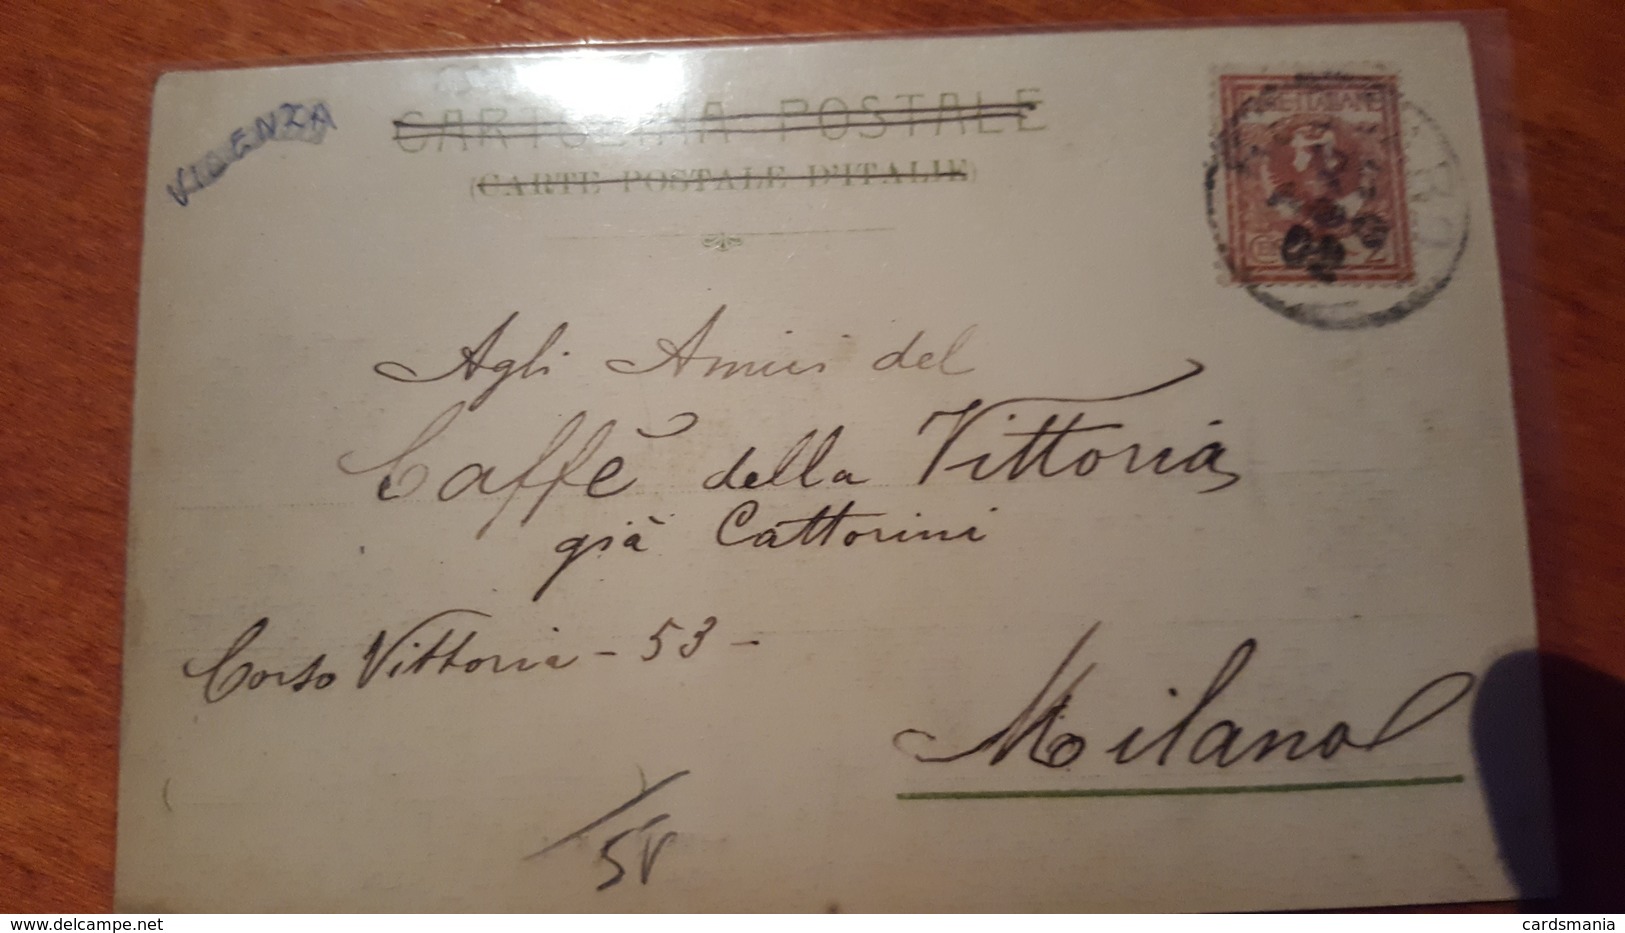 VICENZA
CARTOLINA POSTALE
(CARTE POSTALE D'ITALIE)
POSTE ITALIANE
2
Agli Amici del
Caffè della Vittoria
già Cattorini
Corso Vittoria - 53 -
Milano
cardsmania